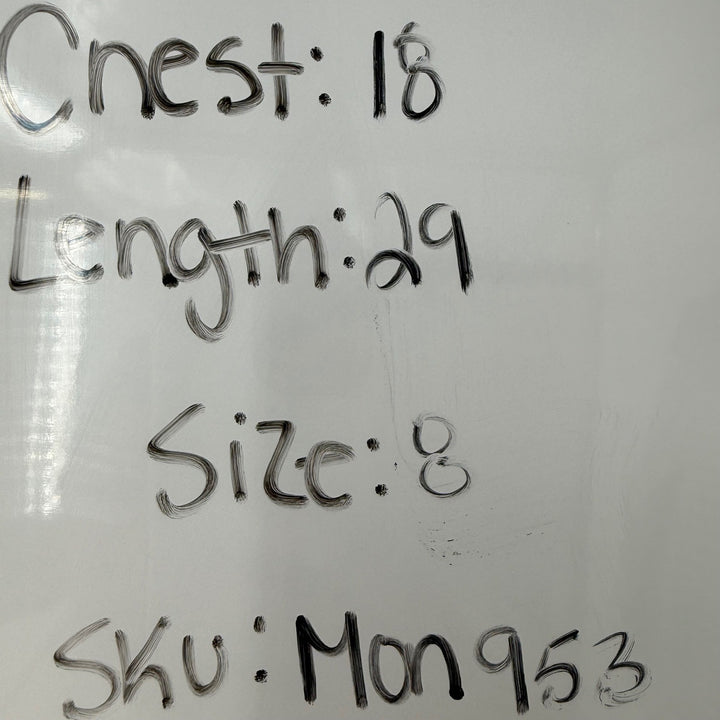 Chest: 18
Length: 29
Size: 8
SKU: Mon953